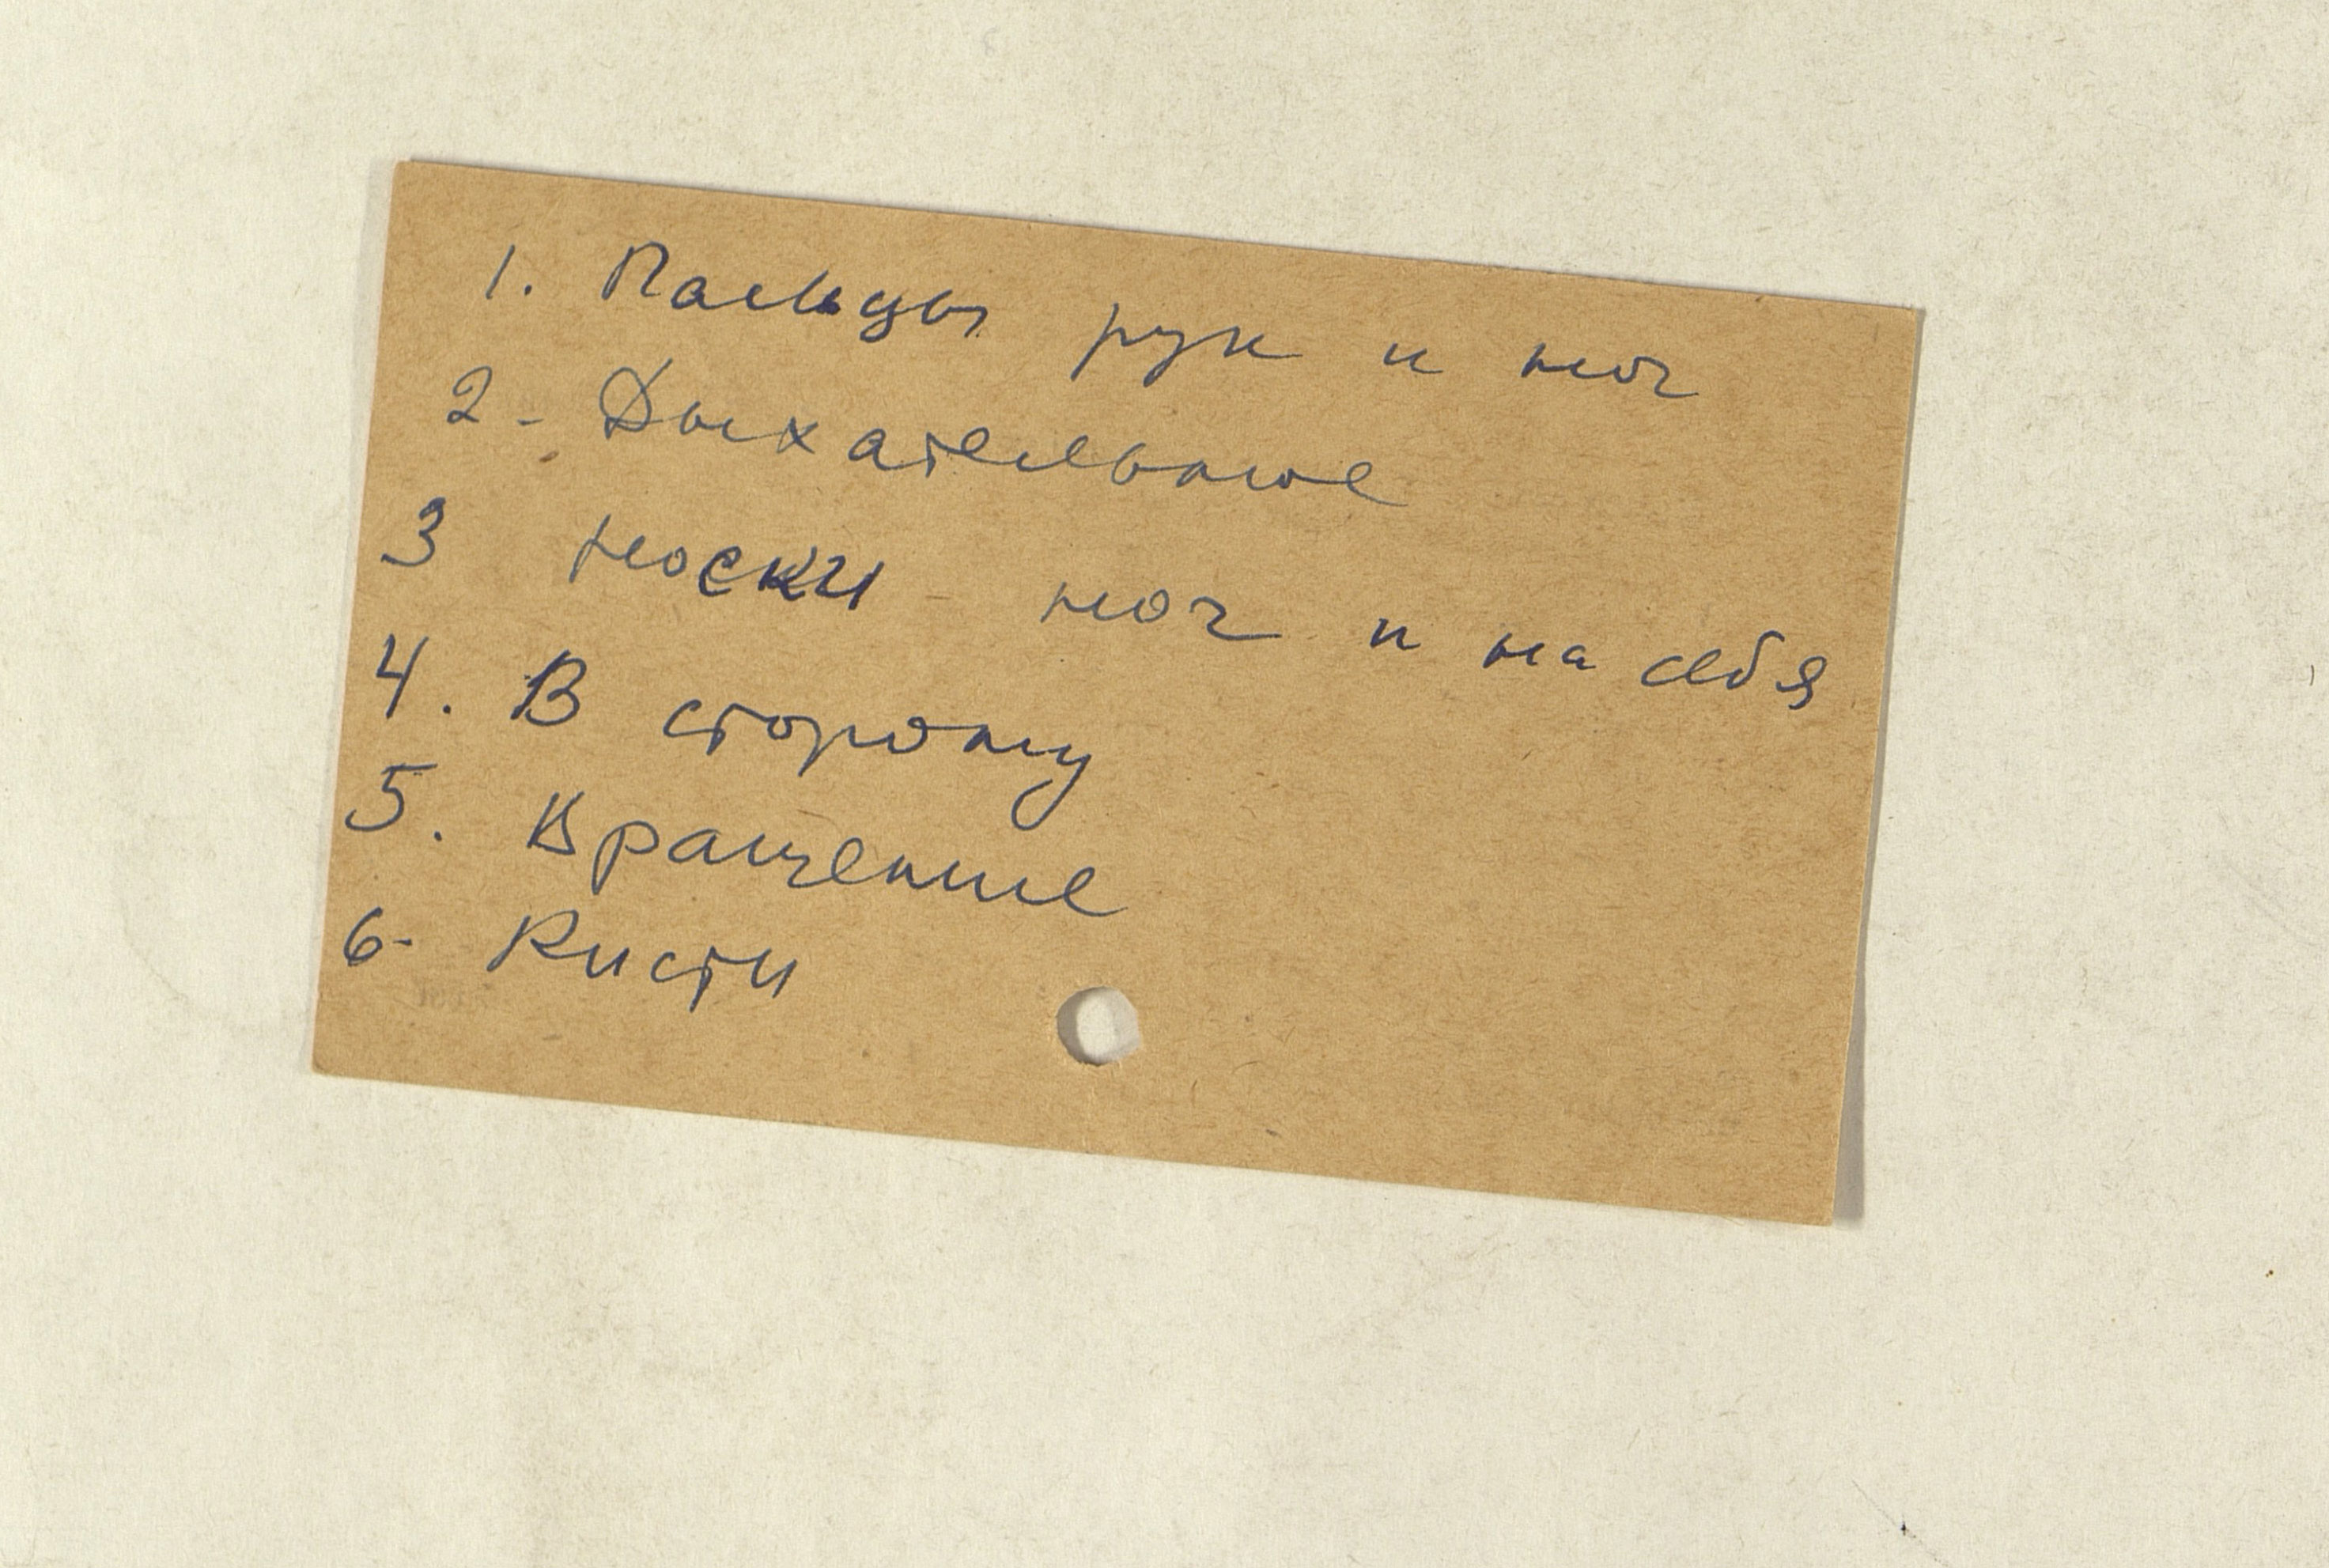 1. Пальцы рук и ног
2 - Дыхательные
3 носки ног и на себя
4. В сторону
5. Вращение
6- Кисти